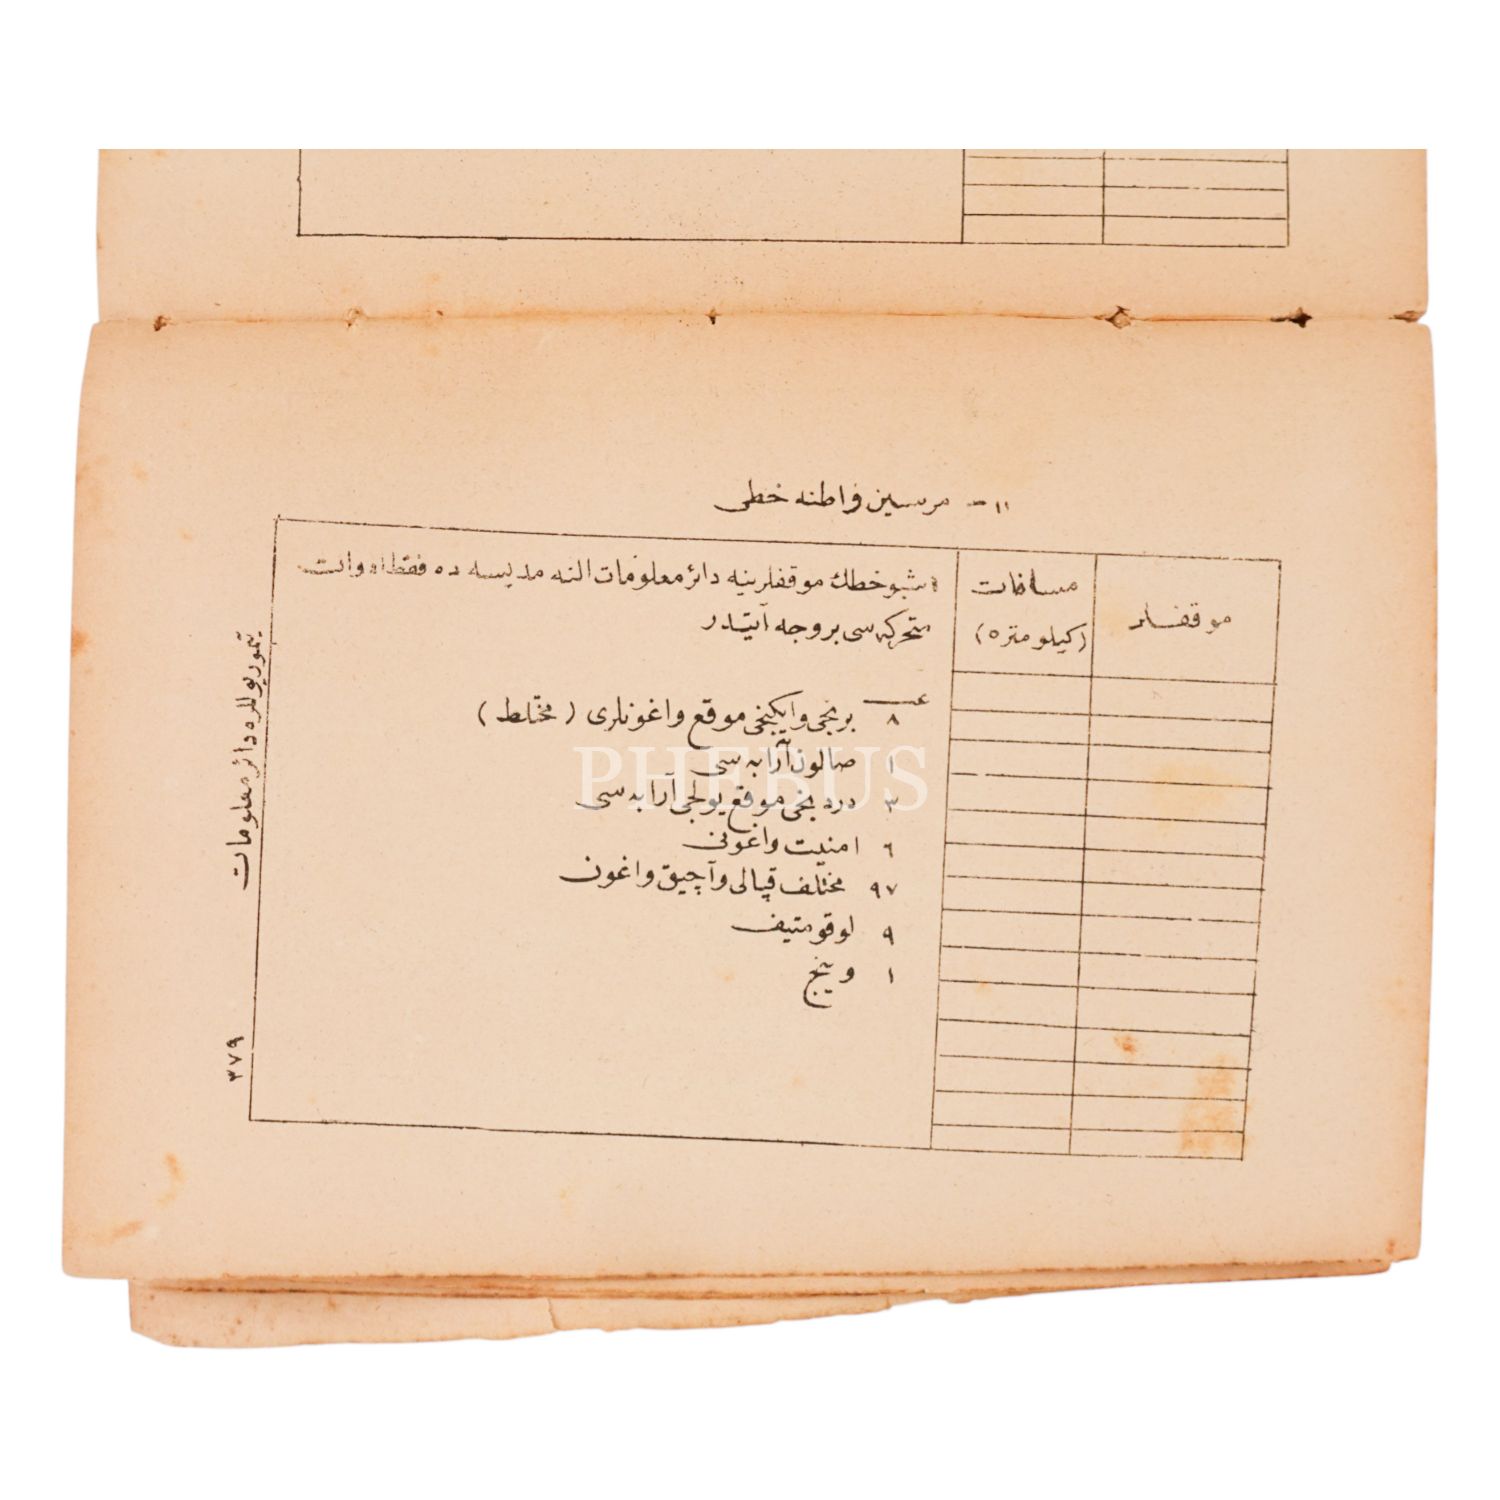 ١١ – مرسين واطنه خطى
موقفلر
مسافات
(كيلومتره)
اشبو خطك موقفلرينه دائر معلومات النه مديسه ده فقط ادوات
متحركه سى بر وجه آتيدر
عــــدد
٨ برنجى وايكنجى موقع واغونلرى (مختلط)
١ صالون آرابه سى
٣ دردنجى موقع يولجى آرابه سى
٦ امنيت واغونى
٩٧ مختلف قپالى وآچيق واغون
٩ لوقوموتيف
١ وينج
تيموريوللره دائر معلومات
٣٧٩
PHEBUS